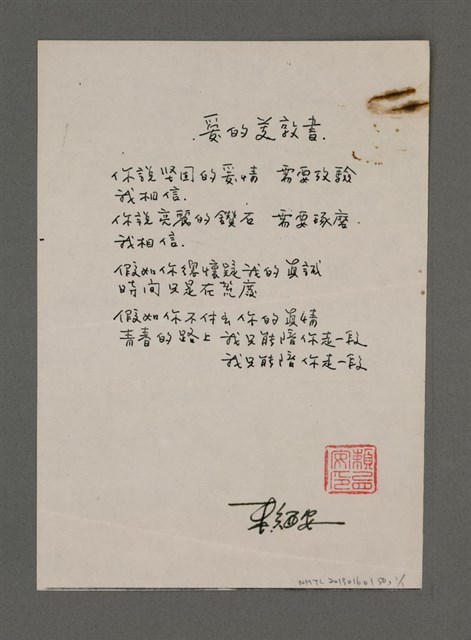 .愛的美敦書.
你說坚固的爱情 需要攷驗
我相信.
你說亮麗的鑽石 需要琢磨.
我相信.
假如你總懷疑我的眞誠
時间只是在荒廢
假如你不付出你的眞情
青春的路上 我只能陪你走一段
我只能陪你走一段
NMTL 20130160150, 1/1